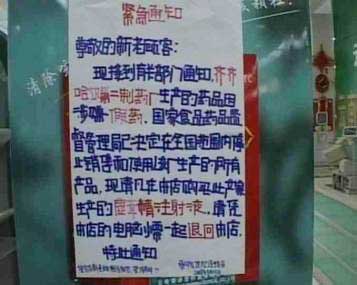 紧急通知
尊敬的新老顾客:
现接到有关部门通知,齐齐
哈尔第二制药厂生产的药品因
涉嫌假药、国家食品药品监
督管理局已决定在全国范围内停
止销售和使用该厂生产的所有
产品,现请凡在店购买此产家
生产的注射液,请凭
本店的电脑小票一起退回本店,
特此通知
清除
颗粒